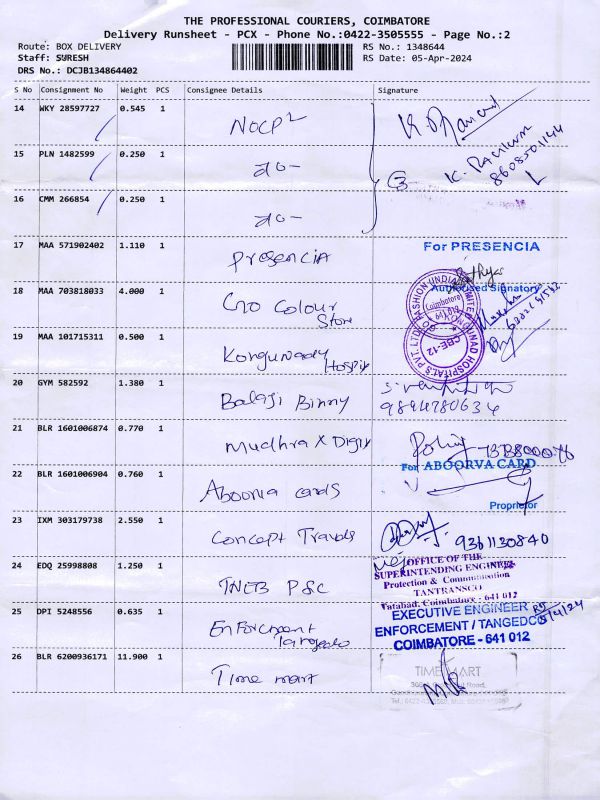 THE PROFESSIONAL COURIERS, COIMBATORE
Delivery Runsheet - PCX - Phone No.:0422-3505555 - Page No.:2
Route: BOX DELIVERY
Staff: SURESH
DRS No.: DCJB134864402
RS No.: 1348644
RS Date: 05-Apr-2024
S No Consignment No Weight PCS Consignee Details Signature
14 WKY 28597727 0.545 1 NOCP2
15 PLN 1482599 0.250 1 -do-
K. 8608501144
16 CMM 266854 0.250 1 -do-
17 MAA 571902402 1.110 1 Presencia For PRESENCIA
Authorised Signatory
18 MAA 703818033 4.000 1 Colour Store
Coimbatore 641 012
19 MAA 101715311 0.500 1 Kongunady Hospix
HOSPITALS PVT. LTD. CBE-12
20 GYM 582592 1.380 1 Balaji Binny
9894780634
21 BLR 1601006874 0.770 1 Mudhra X Digix
22 BLR 1601006904 0.760 1 Aboorva cards For ABOORVA CARD
Proprietor
23 IXM 303179738 2.550 1 Concept Travels 9361130840
24 EDQ 25998808 1.250 1 TNEB PSC
OFFICE OF THE
SUPERINTENDING ENGINEER
Protection & Communication
TANTRANSCO
Tatabad, Coimbatore - 641 012
25 DPI 5248556 0.635 1 Enforcement Tangedco
EXECUTIVE ENGINEER
ENFORCEMENT / TANGEDCO 5/4/24
COIMBATORE - 641 012
26 BLR 6200936171 11.900 1 Time mart
TIME MART